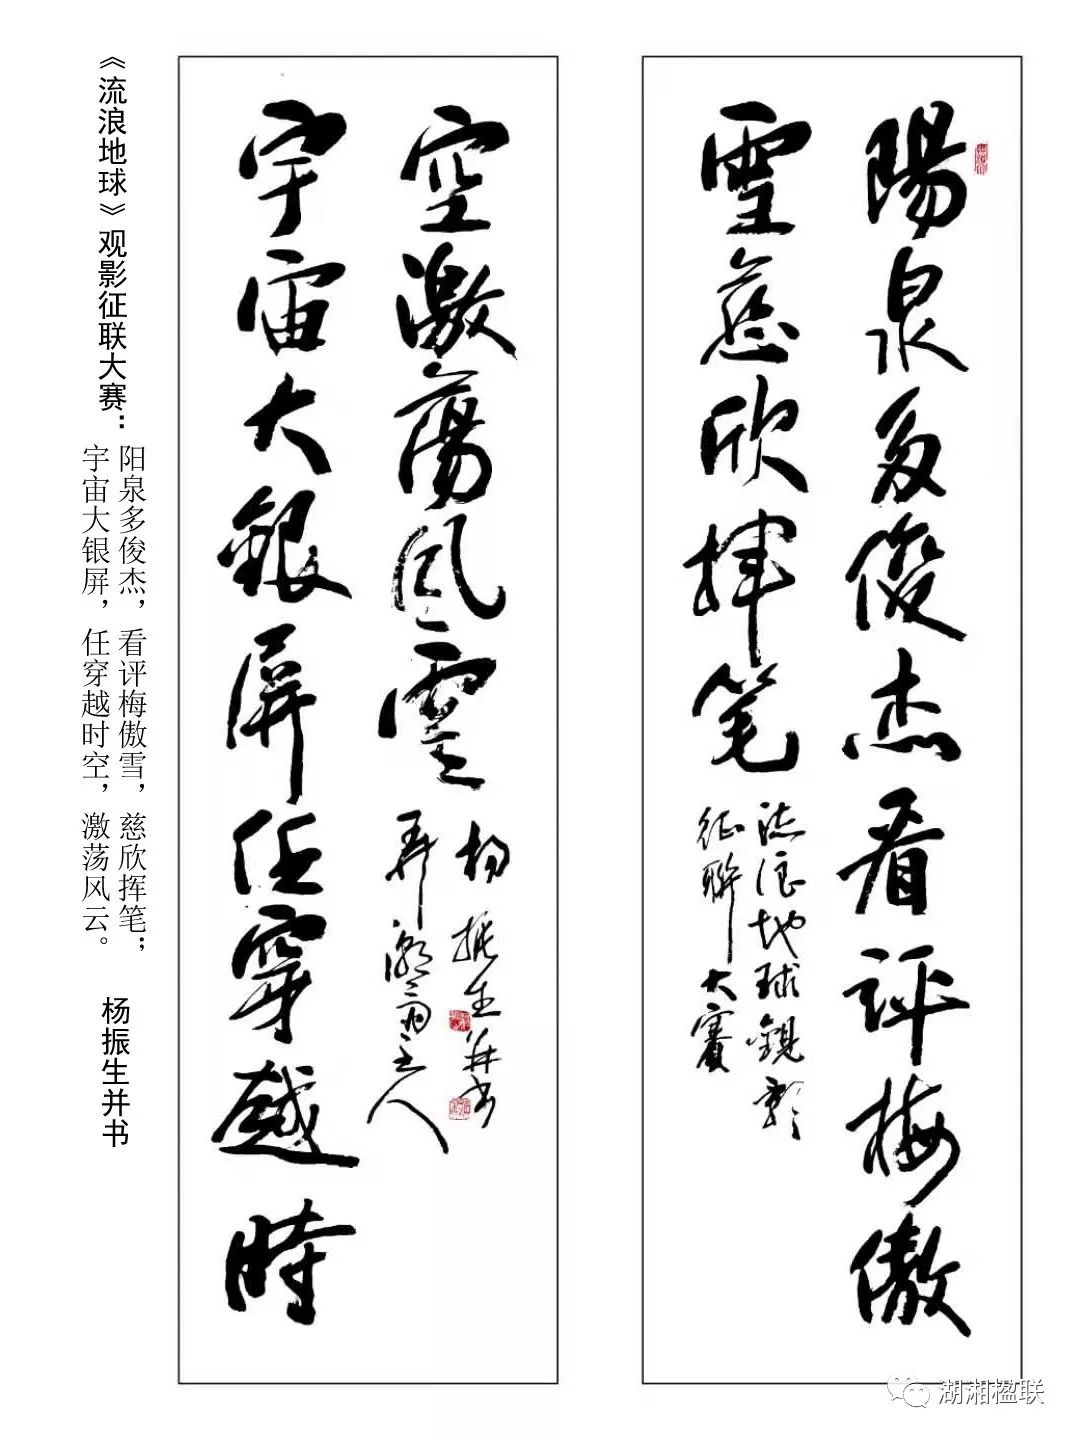 陽泉多俊杰看评梅傲
雪慈欣揮笔
流浪地球觀影
征聯大賽
宇宙大銀屏任穿越時
空激蕩风雲
杨振生并书
《流浪地球》观影征联大赛：
阳泉多俊杰，看评梅傲雪，慈欣挥笔；
宇宙大银屏，任穿越时空，激荡风云。
杨振生并书
湖湘楹联